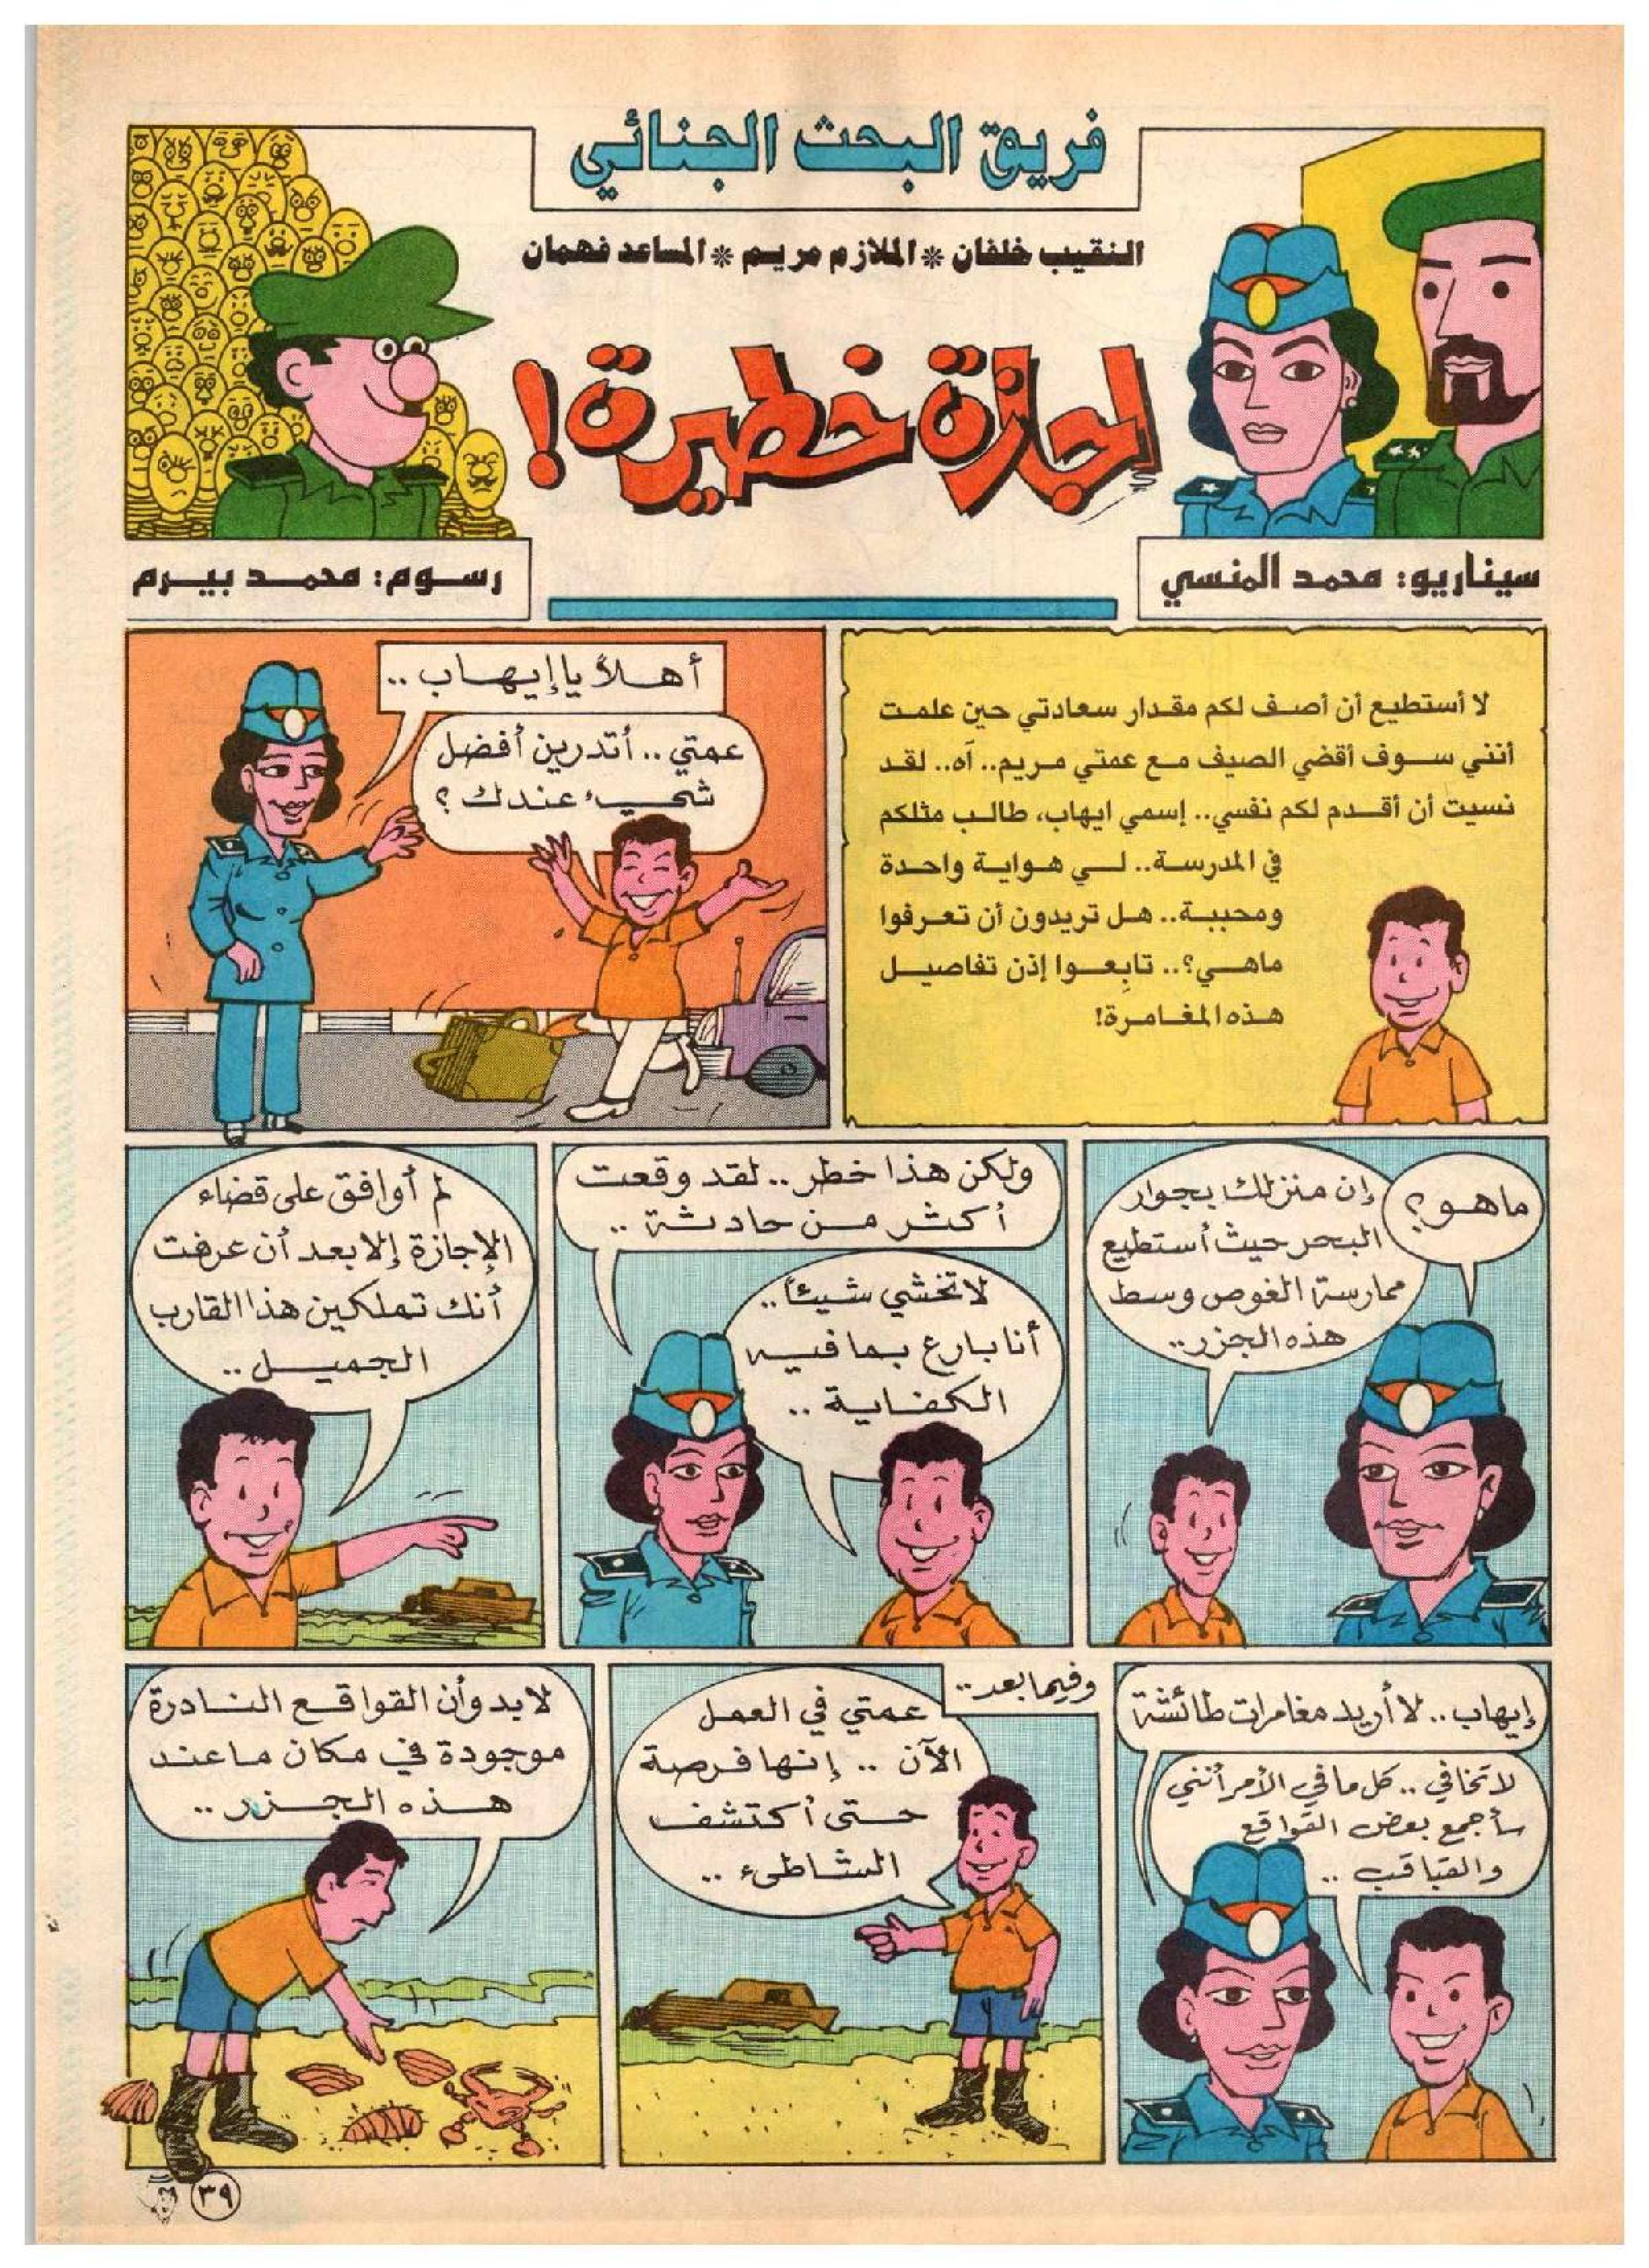 فريق البحث الجنائي
النقيب خلفان * الملازم مريم * المساعد فهمان
إجازة خطيرة!
سيناريو: محمد المنسي
رسوم: محمد بيرم
لا أستطيع أن أصف لكم مقدار سعادتي حين علمت
أنني سوف أقضي الصيف مع عمتي مريم.. آه.. لقد
نسيت أن أقدم لكم نفسي.. إسمي ايهاب، طالب مثلكم
في المدرسة.. لي هواية واحدة
ومحببة.. هل تريدون أن تعرفوا
ماهي؟.. تابعوا إذن تفاصيل
هذه المغامرة!
أهلاً يا إيهاب ..
عمتي .. أتدرين أفضل
شيء عندك ؟
ماهو؟
إن منزلك بجوار
البحر حيث أستطيع
ممارسة الغوص وسط
هذه الجزر..
ولكن هذا خطر .. لقد وقعت
أكثر من حادثة ..
لا تخشي شيئاً ..
أنا بارع بما فيه
الكفاية ..
لم أوافق على قضاء
الإجازة إلا بعد أن عرفت
أنك تملكين هذا القارب
الجميل ..
إيهاب .. لا أريد مغامرات طائشة
لا تخافي .. كل ما في الأمر أنني
سأجمع بعض القواقع
والقباقب ..
وفيما بعد ..
عمتي في العمل
الآن .. إنها فرصة
حتى أكتشف
الشاطىء ..
لابد وأن القواقع النادرة
موجودة في مكان ما عند
هذه الجزر ..
٣٩